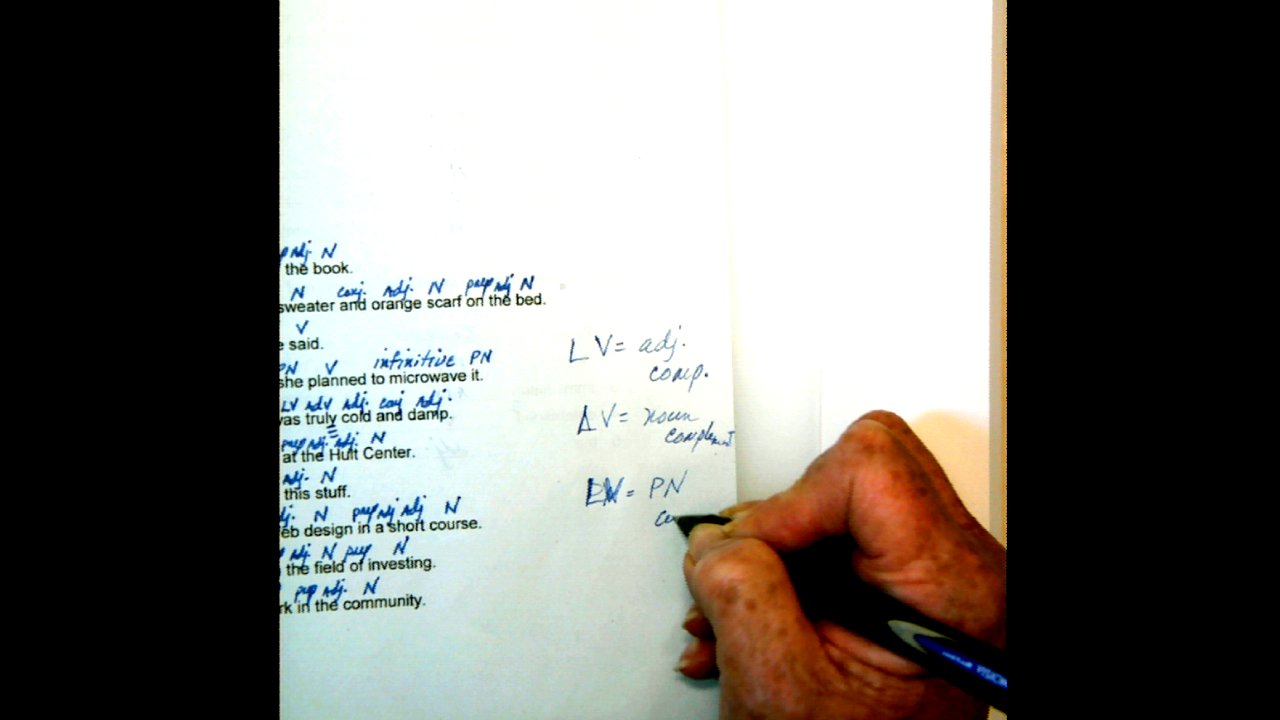 adj. N
the book.
N conj. adj. N prep adj N
sweater and orange scarf on the bed.
V
said.
PN V infinitive PN
she planned to microwave it.
LV adv adj. conj adj.
was truly cold and damp.
prep adj. adj. N
at the Hult Center.
adj. N
this stuff.
N prep adj adj N
web design in a short course.
adj. N prep N
the field of investing.
prep adj. N
in the community.
LV = adj.
comp.
LV = noun
complement
LV = PN